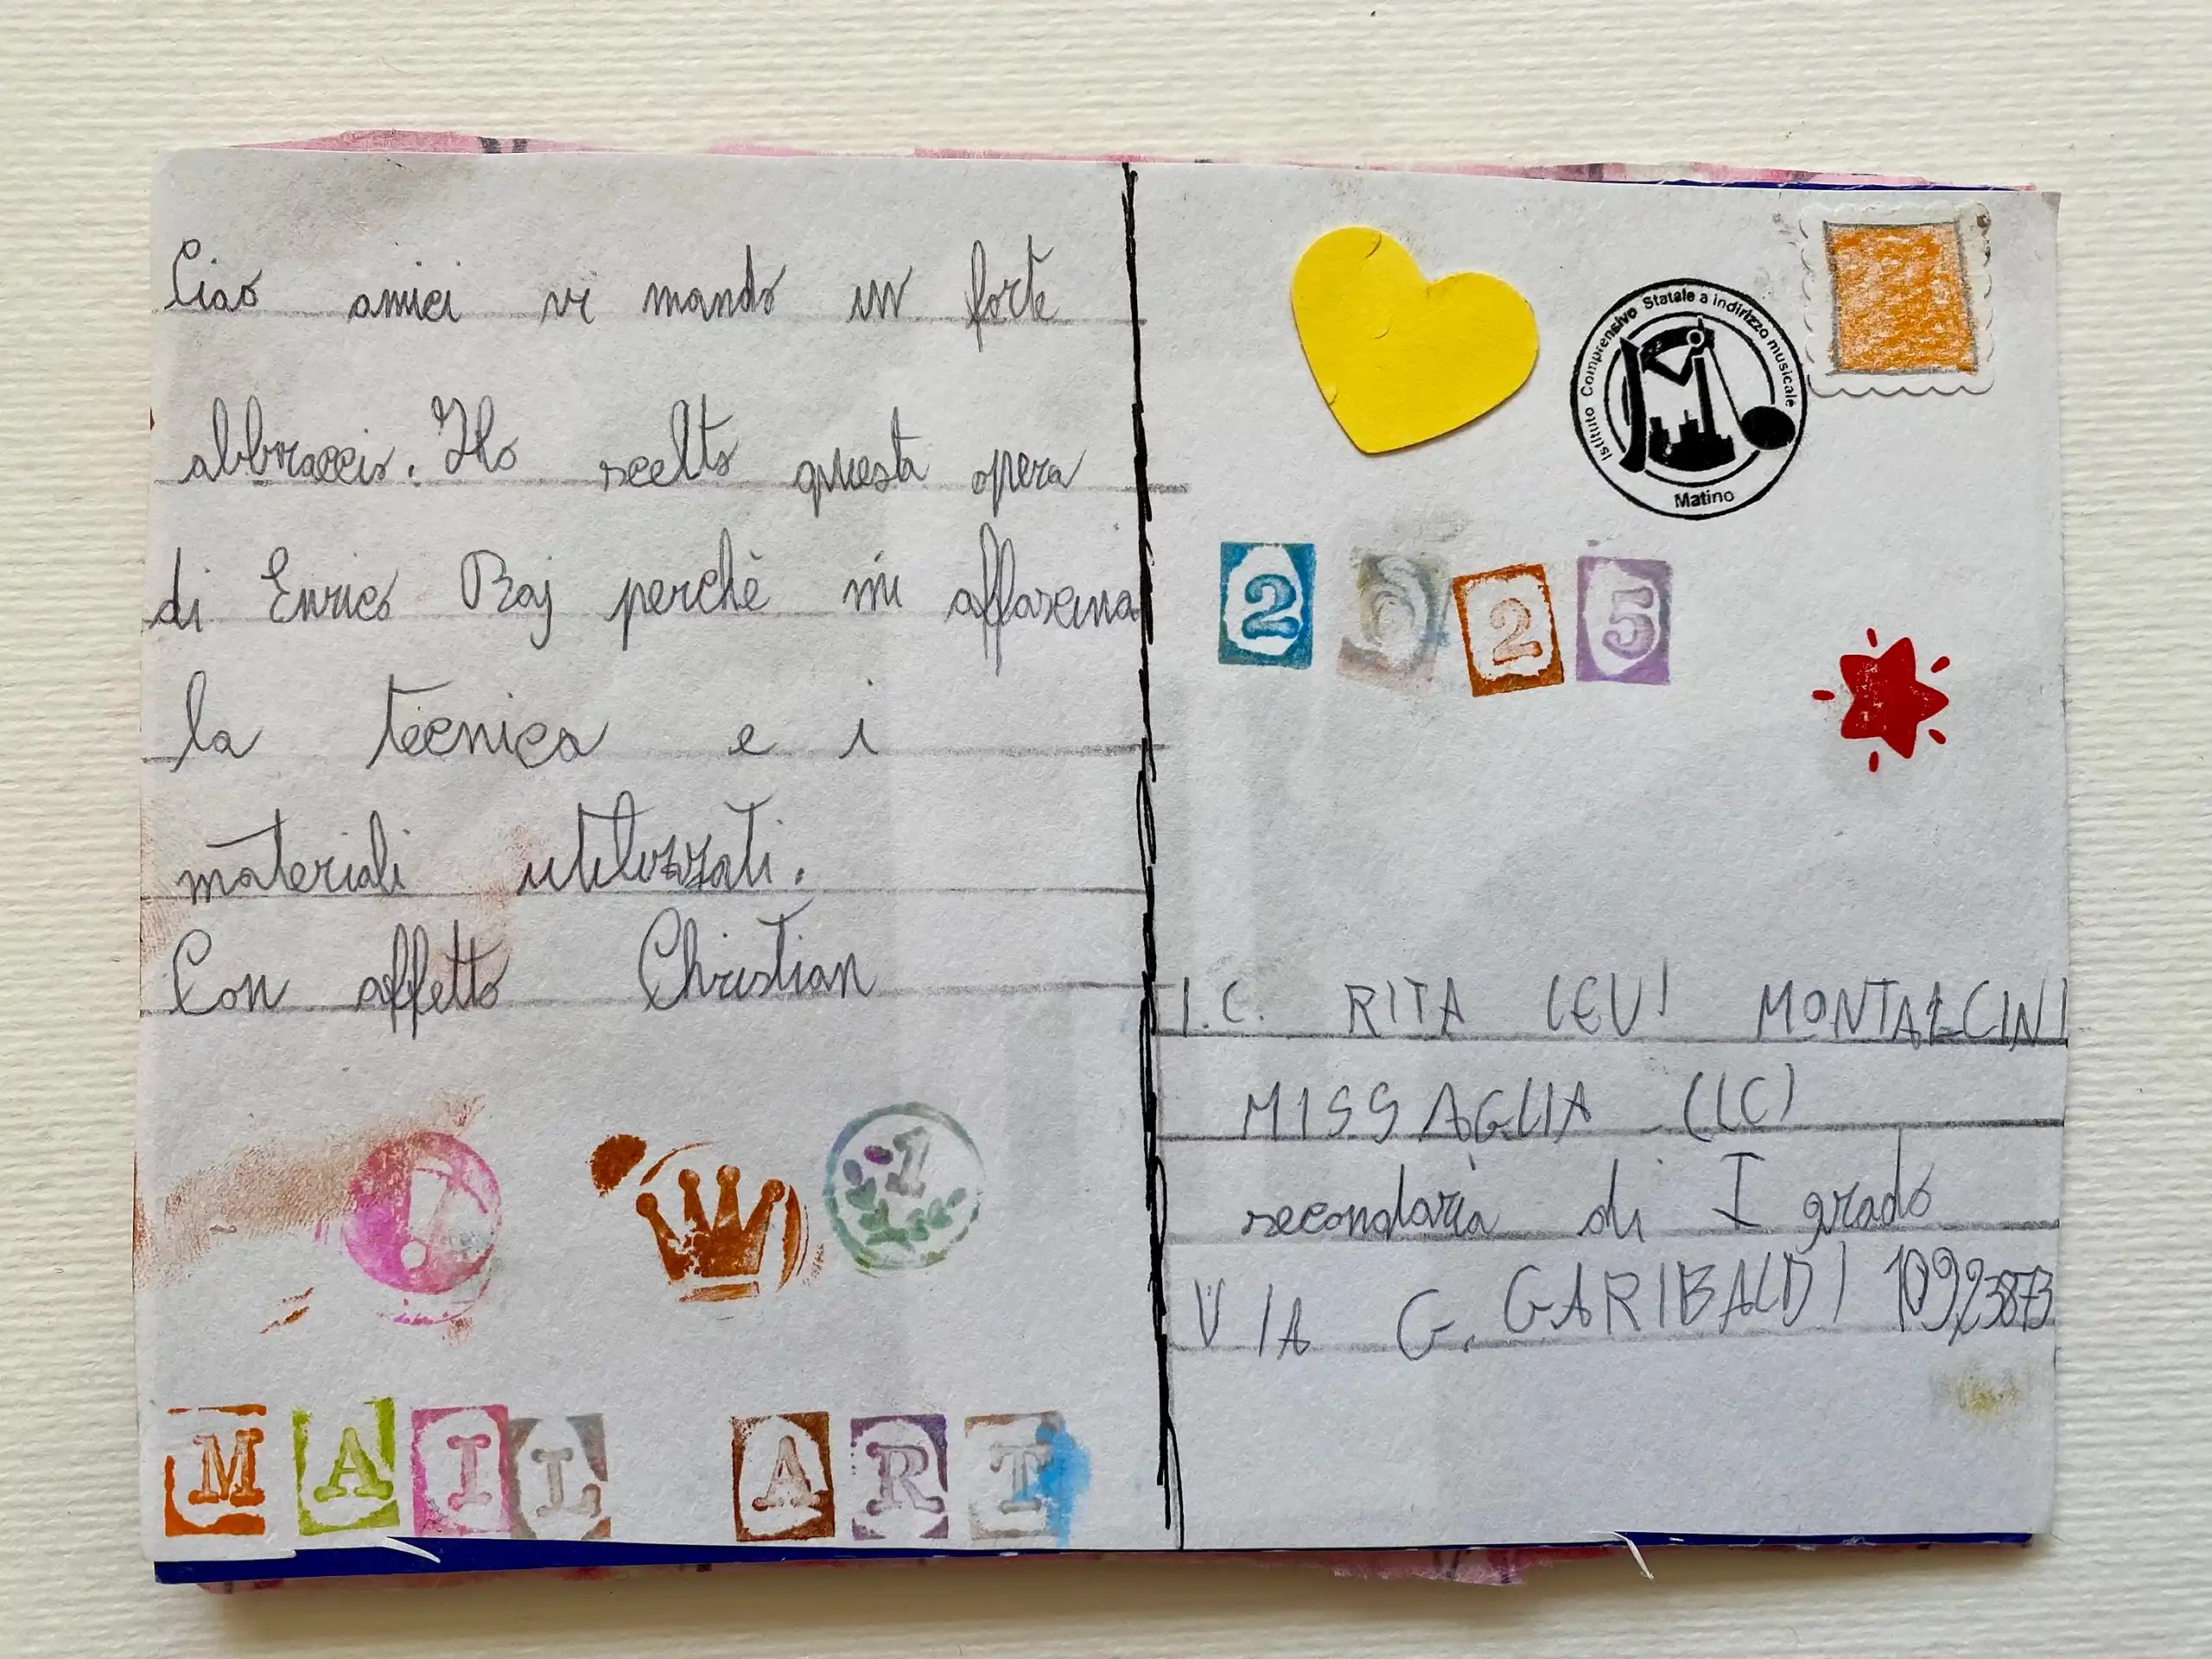 Ciao amici vi mando un forte
abbraccio. Ho scelto questa opera
di Enrico Baj perchè mi affascina
la tecnica e i
materiali utilizzati.
Con affetto Christian
1
MAIL ART
Istituto Comprensivo Statale a indirizzo musicale
Matino
2025
I.C. RITA LEVI MONTALCINI
MISSAGLIA (LC)
secondaria di I grado
VIA G. GARIBALDI